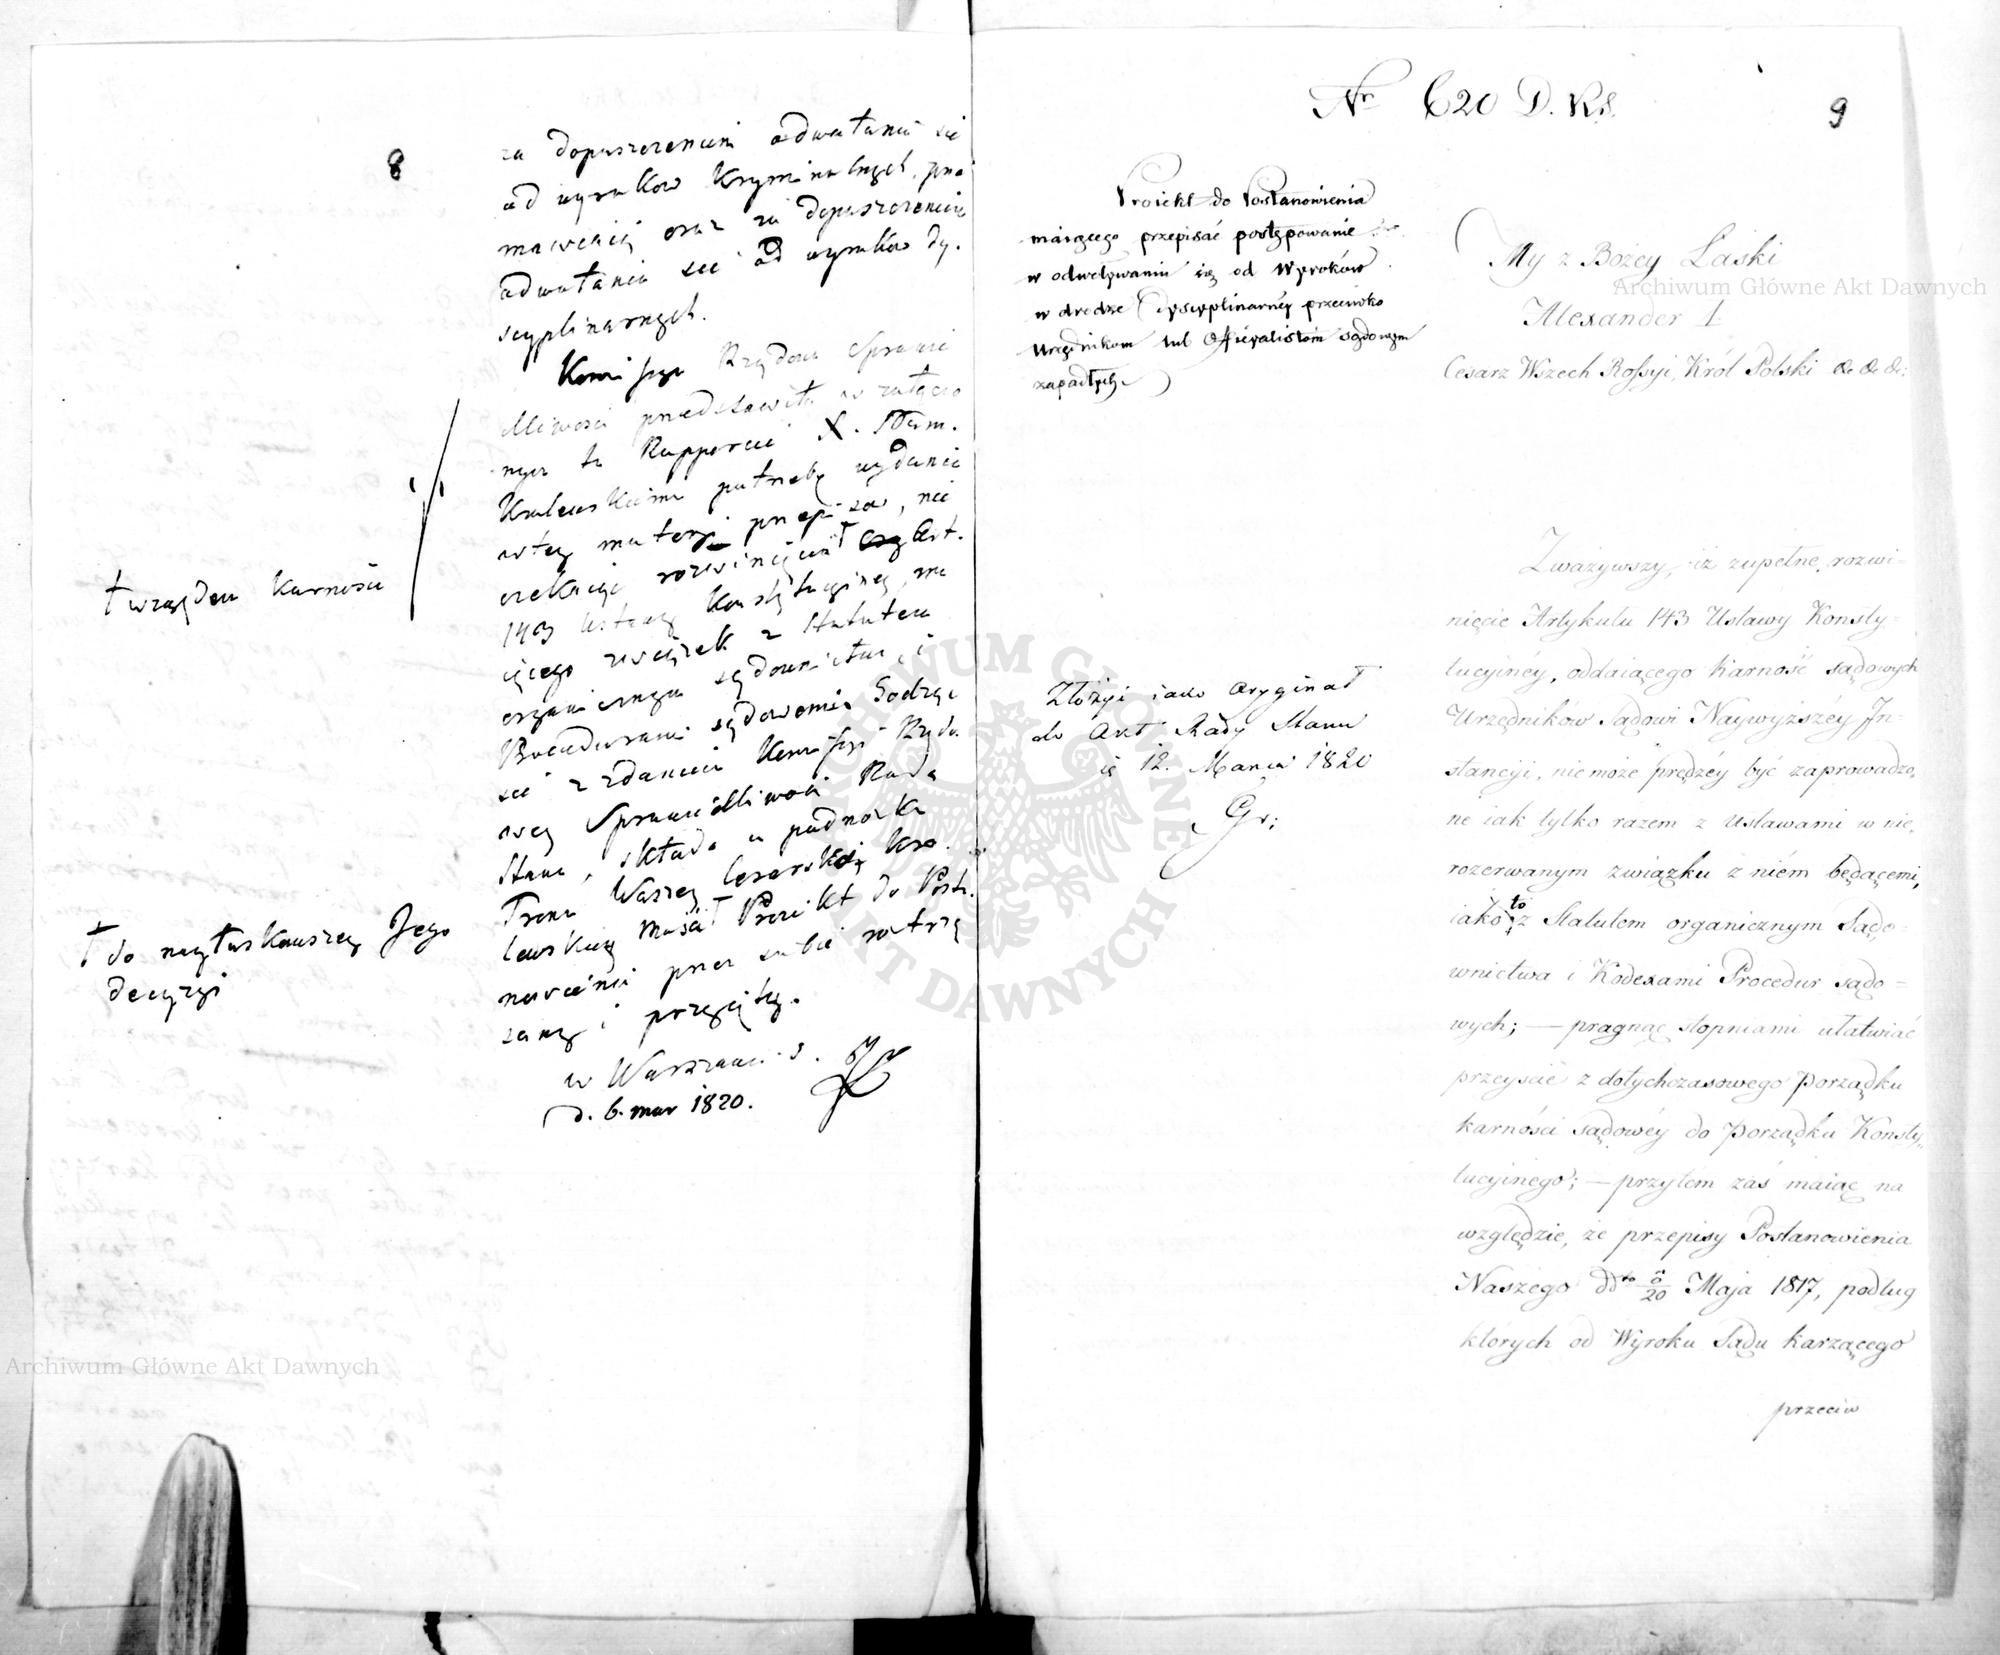 8
za dopuszczeniem odwołania się
od wyroków Kryminalnych, prze
mawiaią oraz za dopuszczeniem
odwołania się od wyroków dy-
scyplinarnych.
Kommissya Rządowa Sprawie
dliwości przedstawiła w załączo
nym tu Rapporcie X. Nam.
Królewskiemu potrzebę wydania
w tey materyi przepisów, nie
czekaiąc rozwinięcia † Art.
143 Ustawy Konstytucyiney, ma
iącego związek z Statutem
organicznym sądownictwa, i
Procedurami sądowemi. Godząc
się z zdaniem Kommissyi Rządo
wey Sprawiedliwości Rada
Stanu, składa u podnóżka
Tronu Waszey Cesarsko Kró
lewskiey Mości † Proiekt do Posta
nowienia przez siebie roztrzą
sany i przyięty.
w Warszawie
d. 6. mar 1820.
† względem Karności
† do naylaskawszey Jego
decyzyi
Nr 620 D. R. S.
9
Proiekt do Postanowienia
maiącego przepisać postępowanie
w odwoływaniu się od Wyroków
w drodze Dyscyplinarney przeciwko
Urzędnikom lub Officyalistom sądowym
zapadłych
Złożyć iako oryginał
do Akt Rady Stanu
12. Marca 1820
Gr:
My z Bożey Łaski
Alexander I.
Cesarz Wszech Rossyi, Król Polski &c &c &c:
Zważywszy, iż zupełne rozwi-
nięcie Artykułu 143 Ustawy Konsty-
tucyinéy, oddaiącego karność sądowych
Urzędników Sądowi Naywyższéy In-
stancyi, nie może prędzéy być zaprowadzo,
ne iak tylko razem z ustawami w nie,
rozerwanym związku z niém będącemi,
iako to z Statutem organicznym Sądo-
wnictwa i Kodexami Procedur sądo-
wych; — pragnąc stopniami ułatwiać
przeyście z dotychczasowego porządku
karności sądowéy do porządku Konsty,
tucyinego; — przytem zaś maiąc na
względzie, że przepisy Postanowienia
Naszego ddto 8/20 Maja 1817, podług
których od Wyroku Sądu karzącego
przeciw
Archiwum Główne Akt Dawnych
Archiwum Główne Akt Dawnych
ARCHIWUM GŁÓWNE AKT DAWNYCH